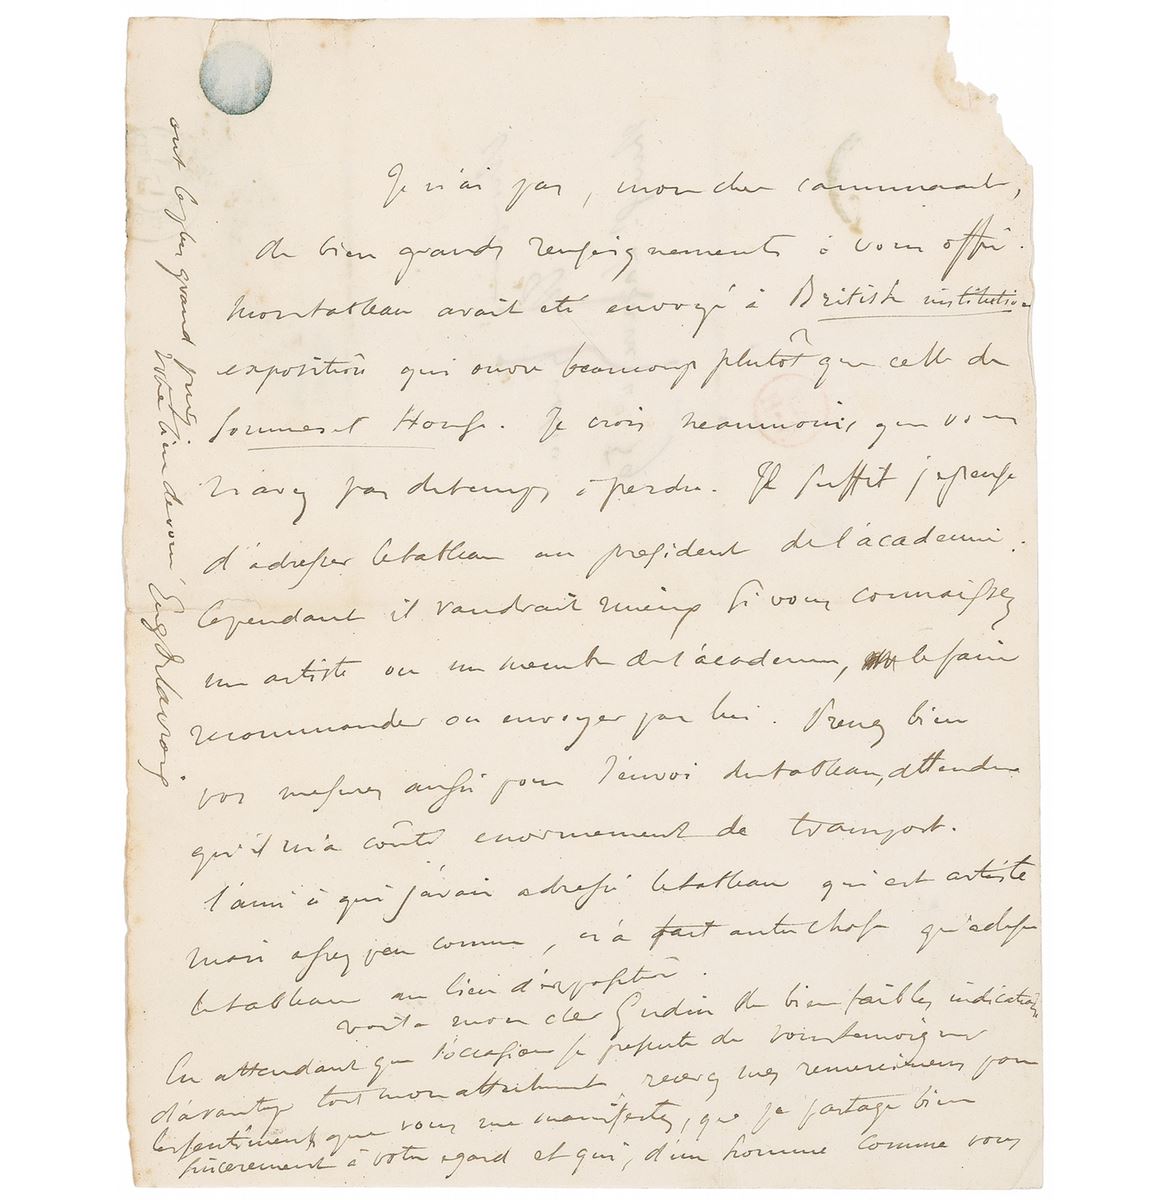 Je n'ai pas, mon cher commandant,
de bien grands renseignements à vous offrir.
mon tableau avait été envoyé à British institution
exposition qui ouvre beaucoup plutôt que celle de
Sommerset House. Je crois neanmoins que vous
n'avez pas de temps à perdre. Il suffit je pense
d'adresser le tableau au president de l'académie.
Cependant il vaudrait mieux si vous connaissez
un artiste ou un membre de l'académie, le faire
recommander ou envoyer par lui. Prenez bien
vos mesures aussi pour l'envoi du tableau, attendu
qu'il m'a coûté enormement de transport.
l'ami à qui j'avais adressé le tableau qui est artiste
mais assez peu connu, n'a fait autre chose qu'adresser
le tableau au lieu d'exposition.
voila mon cher Gudin de bien faibles indications
En attendant que l'occasion se presente de vous temoigner
d'avantage tout mon attachement recevez mes remerciemens pour
les sentiments que vous me manifestez, que je partage bien
sincerement à votre egard et qui, d'un homme comme vous
ont le plus grand prix
Votre bien devoué Eug Delacroix